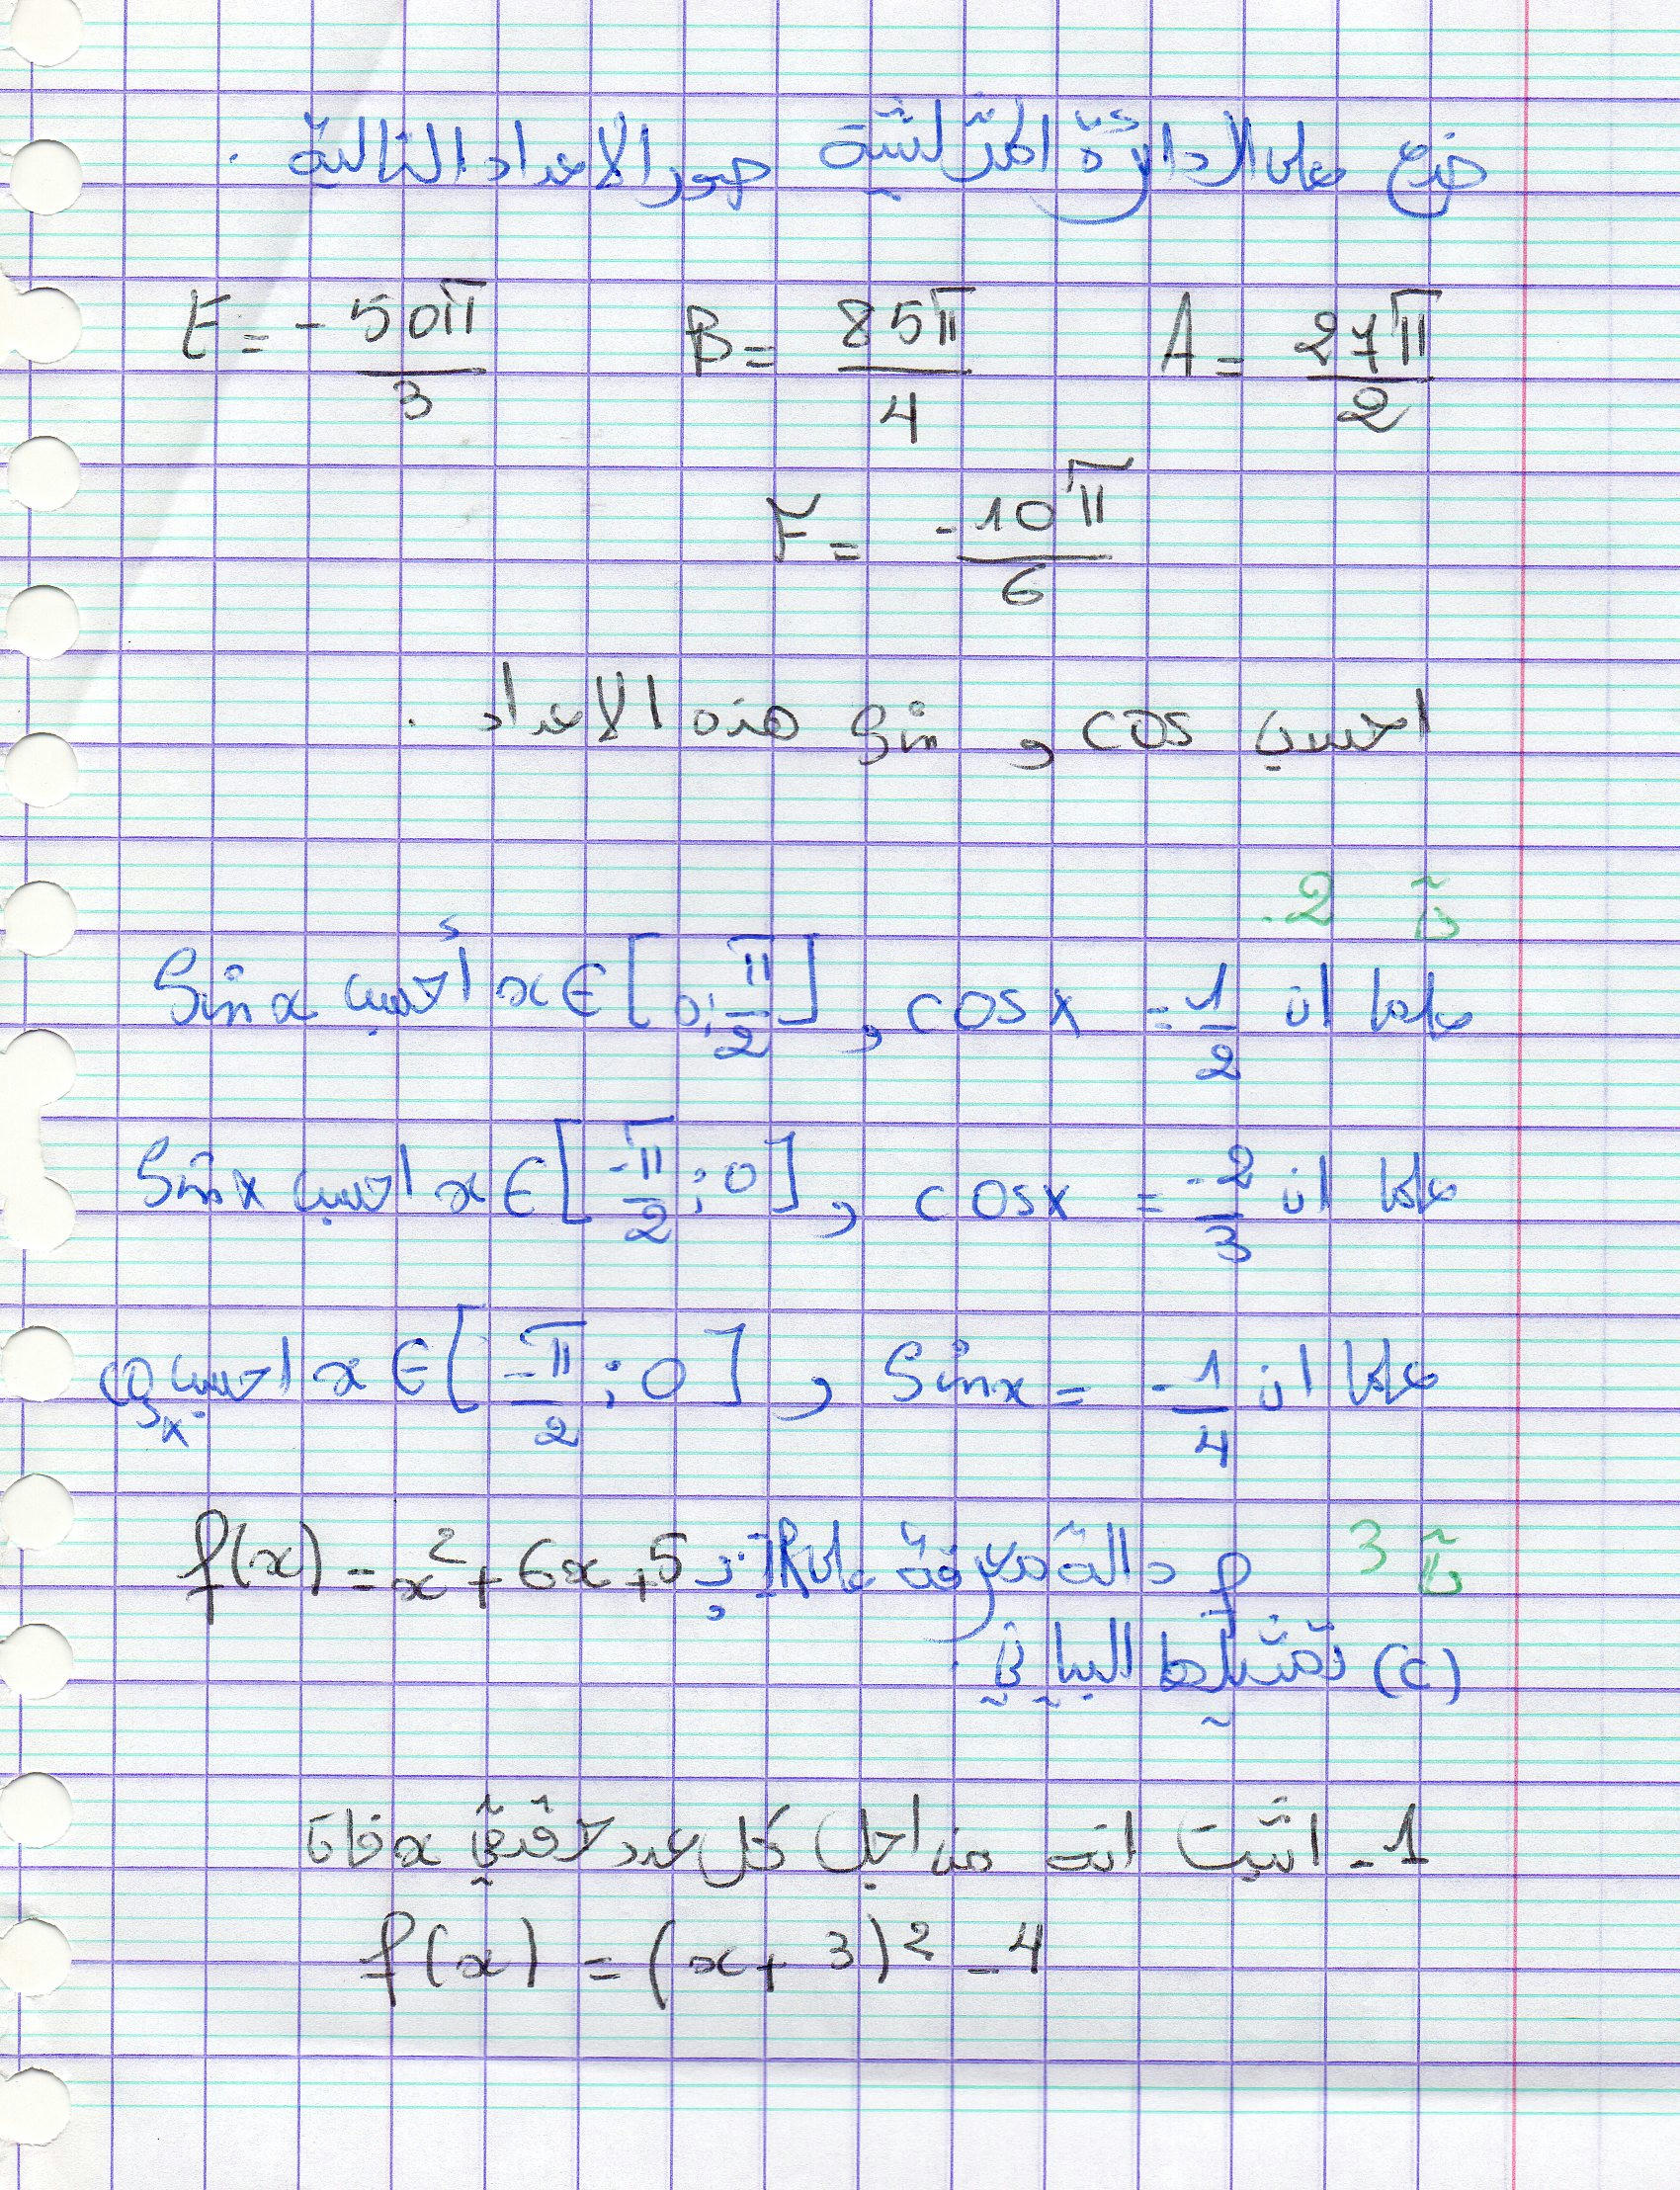 ضع على الدائرة المثلثية صور الاعداد التالية .
A = 27π/2 B = 85π/4 E = - 50π/3
F = -10π/6
احسب cos و sin هذه الاعداد .
ت 2.
علما ان cos x = 1/2 و x ∈ [0; π/2] أحسب Sin x
علما ان cos x = -2/3 و x ∈ [-π/2 ; 0] احسب Sin x
علما ان Sin x = -1/4 و x ∈ [-π/2 ; 0] احسب cos x
ت 3 f دالة معرفة على IR بـ: f(x) = x² + 6x + 5 و
(C) تمثيلها البياني .
1 - اثبت انه من اجل كل عدد حقيقي x فان
f(x) = (x + 3)² - 4